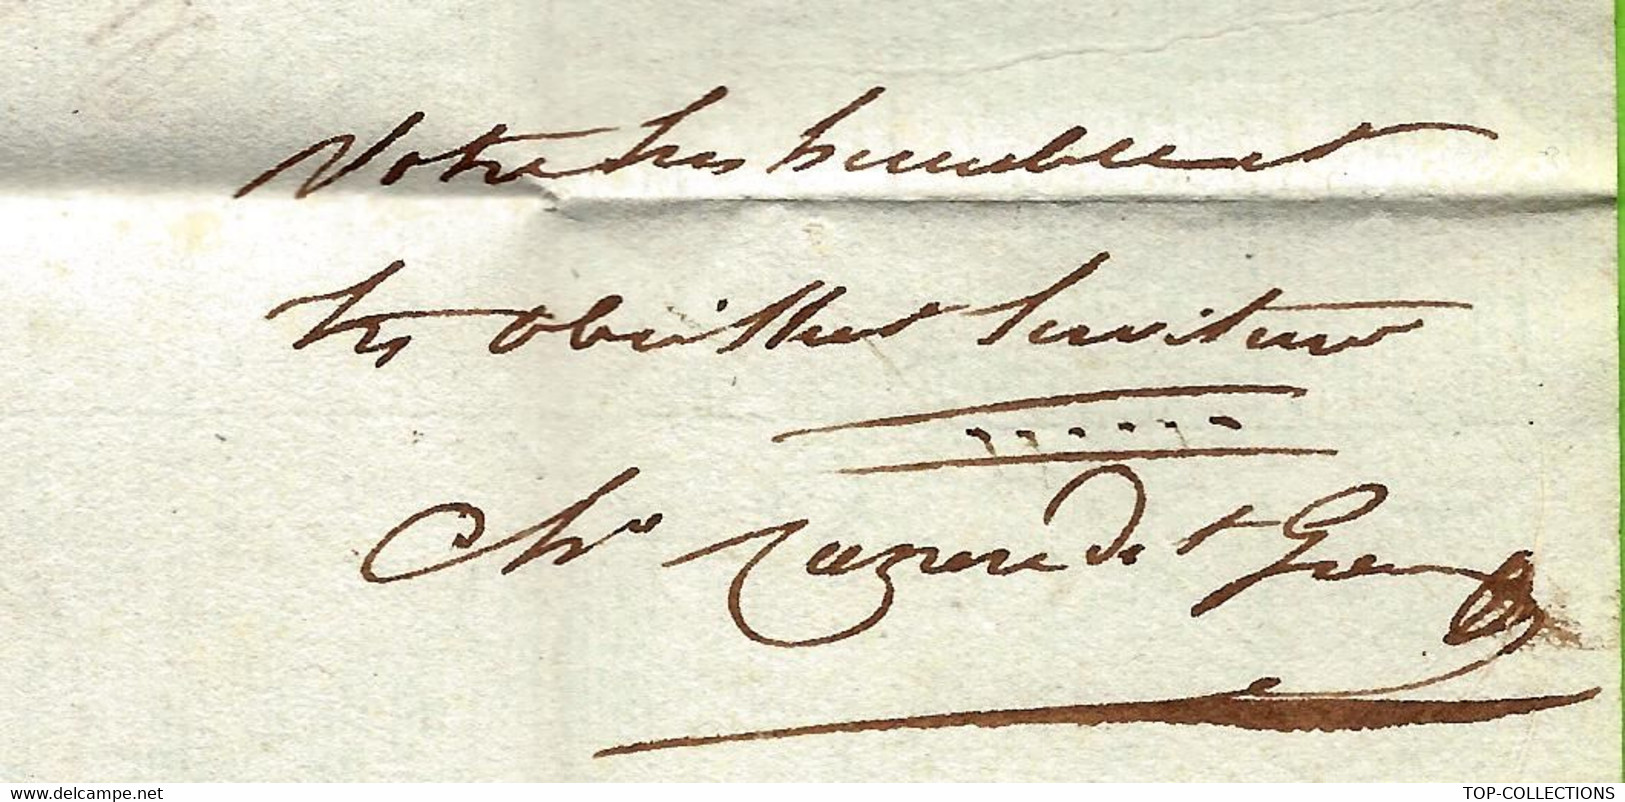 Votre tres humble et
tres obeissant serviteur
Ch.er de St
www.delcampe.net
TOP-COLLECTIONS